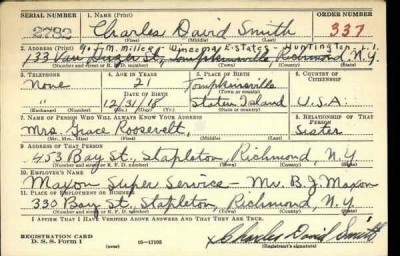 SERIAL NUMBER 1. NAME (Print) ORDER NUMBER
2792 Charles David Smith 337
(First) (Middle) (Last)
2. ADDRESS (Print) M. Miller Wincoma Estates - Huntington L.I.
133 Van Duzer St., Tompkinsville Richmond, N.Y.
(Number and street or R. F. D. number) (Town) (County) (State)
3. TELEPHONE 4. AGE IN YEARS 5. PLACE OF BIRTH 6. COUNTRY OF CITIZENSHIP
None 21 Tompkinsville
DATE OF BIRTH (Town or county)
12/31/18 Staten Island U.S.A.
(Exchange) (Number) (Mo.) (Day) (Yr.) (State or country)
7. NAME OF PERSON WHO WILL ALWAYS KNOW YOUR ADDRESS 8. RELATIONSHIP OF THAT PERSON
Mrs. Grace Roosevelt, Sister
(Mr., Mrs., Miss) (First) (Middle) (Last)
9. ADDRESS OF THAT PERSON
453 Bay St., Stapleton, Richmond, N.Y.
(Number and street or R. F. D. number) (Town) (County) (State)
10. EMPLOYER'S NAME
Maxon Super Service - Mr. B.J. Maxon
11. PLACE OF EMPLOYMENT OR BUSINESS
330 Bay St., Stapleton, Richmond, N.Y.
(Number and street or R. F. D. number) (Town) (County) (State)
I AFFIRM THAT I HAVE VERIFIED ABOVE ANSWERS AND THAT THEY ARE TRUE.
REGISTRATION CARD
D. S. S. Form 1 (over) 16-17105 Charles David Smith
(Registrant's signature)